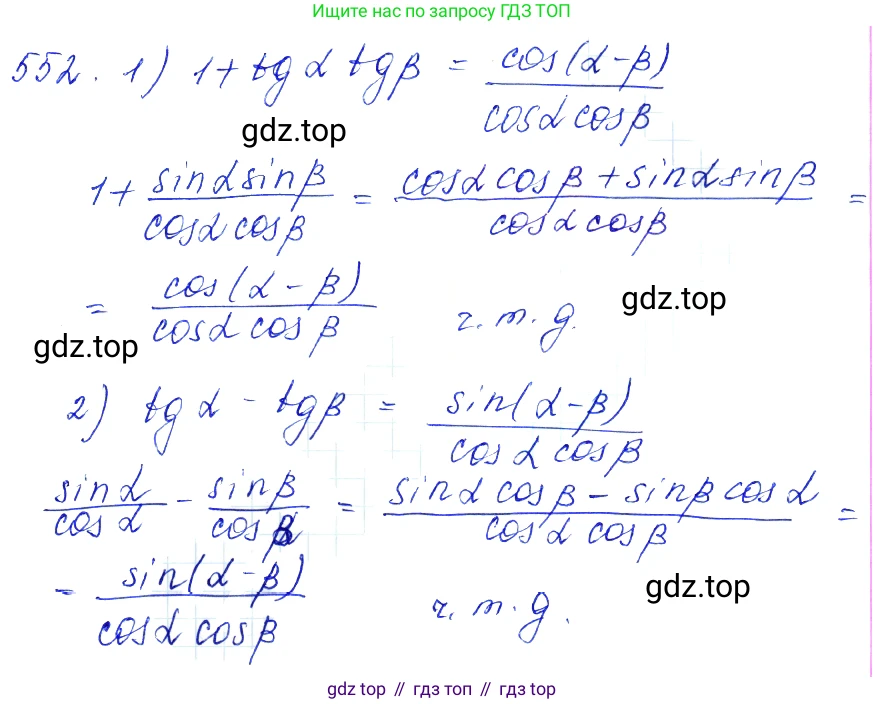 Ищите нас по запросу ГДЗ ТОП
552. 1) 1 + tg α tg β = cos(α - β) / cos α cos β
gdz.top
1 + sin α sin β / cos α cos β = cos α cos β + sin α sin β / cos α cos β =
= cos(α - β) / cos α cos β ч.т.д.
gdz.top
gdz.top
2) tg α - tg β = sin(α - β) / cos α cos β
sin α / cos α - sin β / cos β = sin α cos β - sin β cos α / cos α cos β =
= sin(α - β) / cos α cos β ч.т.д.
gdz.top
gdz top // гдз топ // гдз top